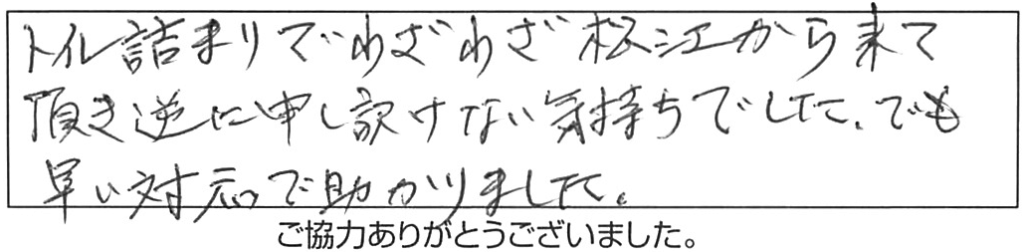 トイレ詰まりでわざわざ松江から来て
頂き逆に申し訳けない気持ちでした。でも
早い対応で助かりました。
ご協力ありがとうございました。